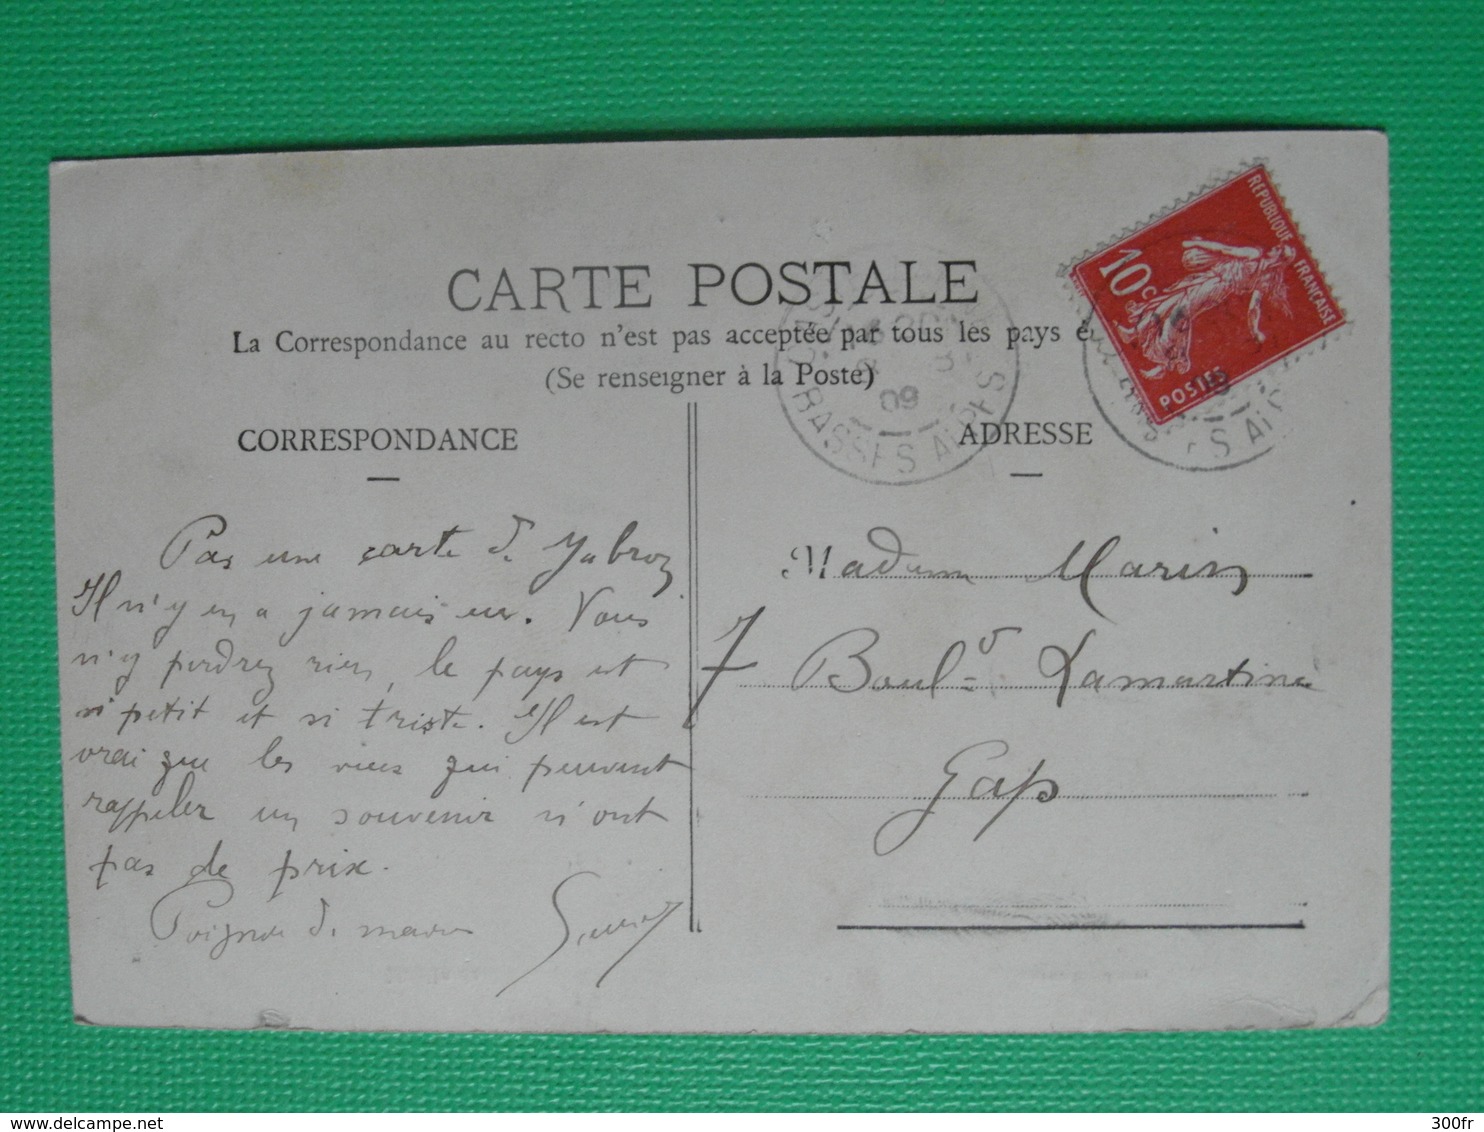 CARTE POSTALE
La Correspondance au recto n'est pas acceptée par tous les pays é
(Se renseigner à la Poste)
CORRESPONDANCE
ADRESSE
REPUBLIQUE FRANÇAISE
10c
POSTES
09
BASSES ALPES
Pas une carte de
Il n'y en a jamais eu. Vous
n'y perdrez rien, le pays est
si petit et si triste. Il est
vrai que les vues qui peuvent
rappeler un souvenir n'ont
pas de prix.
Poignée de mains
Madame Marin
7 Boul.d Lamartine
Gap
300fr